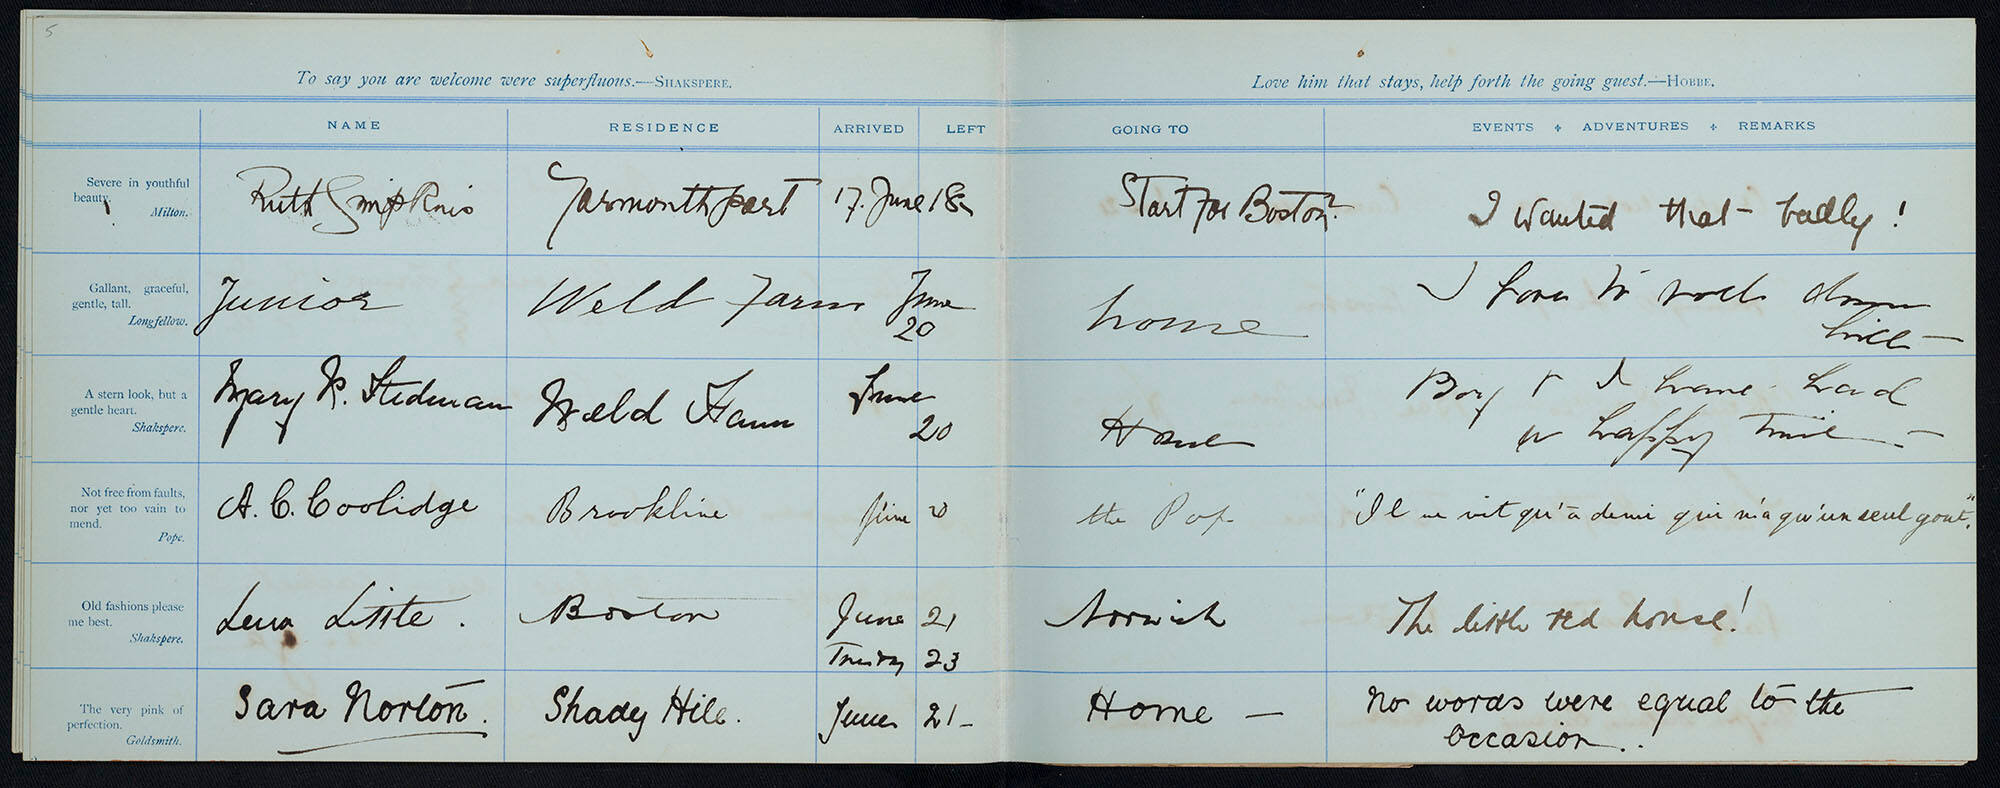 5
To say you are welcome were superfluous.—SHAKSPERE.
Love him that stays, help forth the going guest.—HOBBE.
NAME RESIDENCE ARRIVED LEFT GOING TO EVENTS ✣ ADVENTURES ✣ REMARKS
Severe in youthful
beauty.
Milton.
Ruth Simpkins Yarmouthport 17. June 18 Start for Boston? I wanted that badly!
Gallant, graceful,
gentle, tall.
Longfellow.
Junior Weld Farm June
20
home
I love to roll down
hill—
A stern look, but a
gentle heart.
Shakspere.
Mary R. Stedman Weld Farm June
20
Home
Boy & I have had
a happy time—
Not free from faults,
nor yet too vain to
mend.
Pope.
A. C. Coolidge Brookline June 20 the Pop "Il ne vit qu'à demi qui n'a qu'un seul gout."
Old fashions please
me best.
Shakspere.
Lena Little. Boston June 21
Tuesday 23
Norwich The little red house!
The very pink of
perfection.
Goldsmith.
Sara Norton. Shady Hill. June 21– Home — No words were equal to the
occasion..